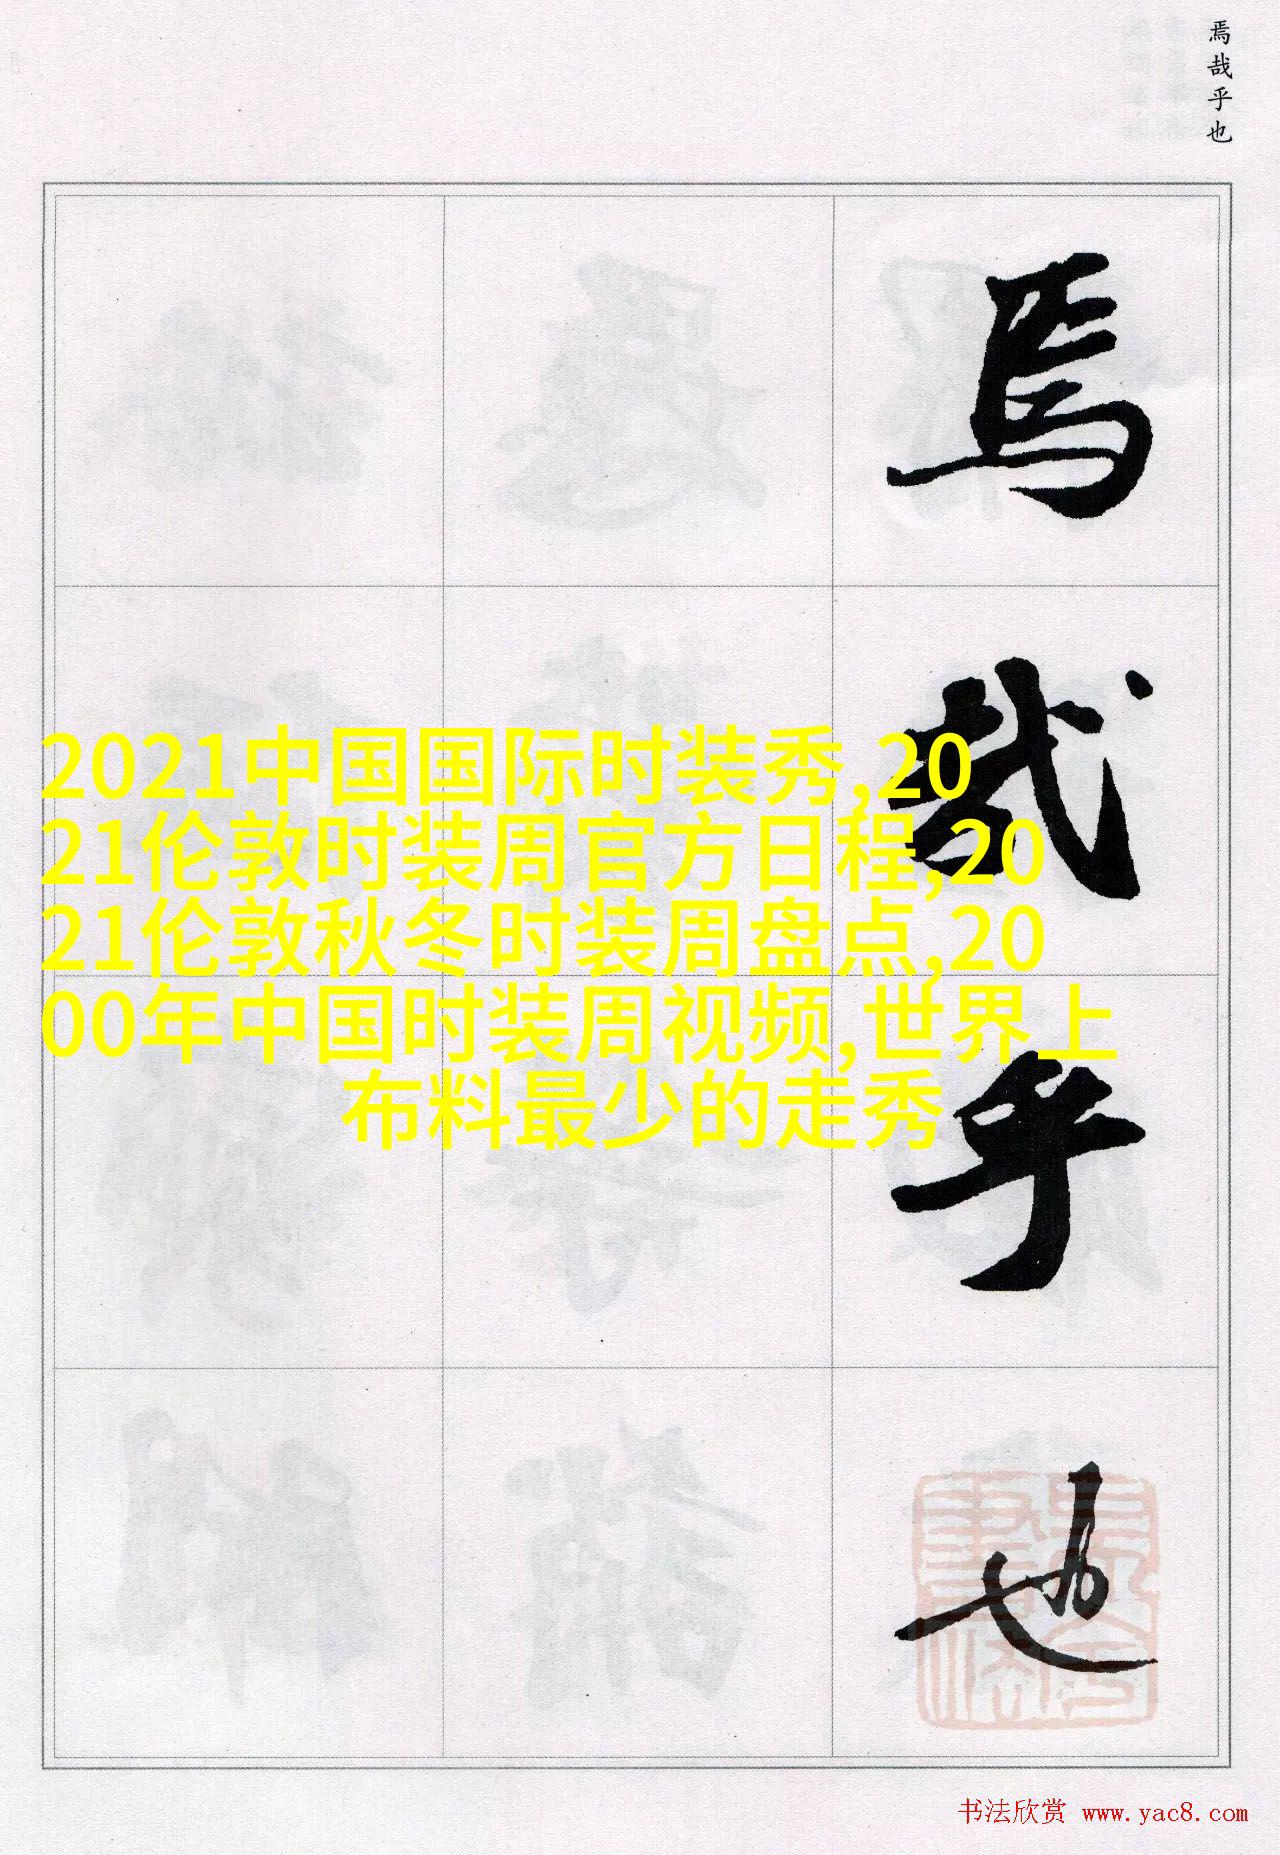 焉哉乎也
焉
哉
乎
也
2021中国国际时装秀,20
21伦敦时装周官方日程,20
21伦敦秋冬时装周盘点,20
00年中国时装周视频,世界上
布料最少的走秀
书法欣赏 www.yac8.com